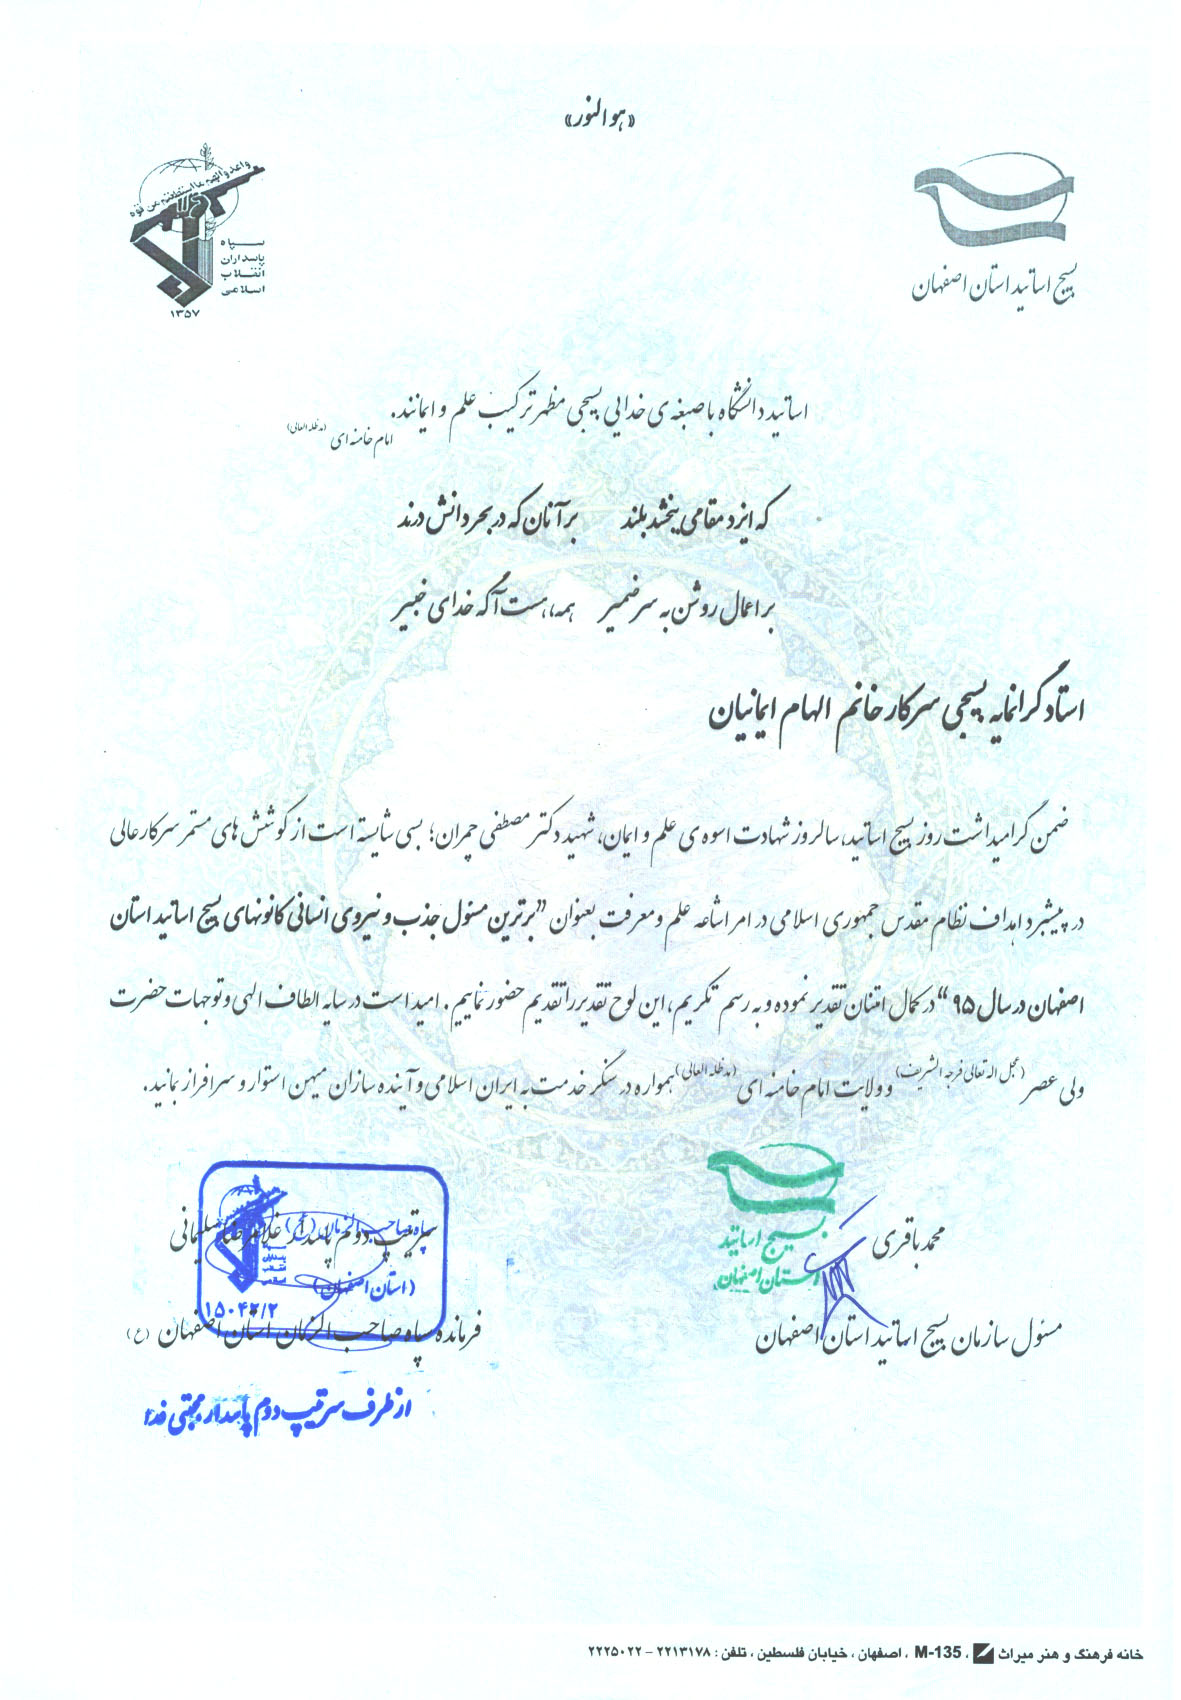 «هوالنور»
واعدوا لهم ما استطعتم من قوه
سپاه
پاسداران
انقلاب
اسلامی
۱۳۵۷
بسیج اساتید استان اصفهان
اساتید دانشگاه با صبغه ی خدایی بسیجی مظهر ترکیب علم و ایمانند.
امام خامنه ای (مدظله العالی)
که ایزد مقامی ببخشد بلند    بر آنان که در بحر دانش درند
بر اعمال روشن به سر ضمیر    همه، هست آگه خدای خبیر
استاد گرانمایه بسیجی سرکار خانم الهام ایمانیان
ضمن گرامیداشت روز بسیج اساتید، سالروز شهادت اسوه ی علم و ایمان، شهید دکتر مصطفی چمران؛ بسی شایسته است از کوشش های مستمر سرکارعالی
در پیشبرد اهداف نظام مقدس جمهوری اسلامی در امر اشاعه علم و معرفت بعنوان "برترین مسئول جذب و نیروی انسانی کانونهای بسیج اساتید استان
اصفهان در سال ۹۵" در کمال امتنان تقدیر نموده و به رسم تکریم، این لوح تقدیر را تقدیم حضور نماییم. امید است در سایه الطاف الهی و توجهات حضرت
ولی عصر (عجل اله تعالی فرجه الشریف) و ولایت امام خامنه ای (مدظله العالی) همواره در سنگر خدمت به ایران اسلامی و آینده سازان میهن استوار و سرافراز بمانید.
بسیج اساتید
استان اصفهان
محمد باقری
مسئول سازمان بسیج اساتید استان اصفهان
سرتیپ دوم پاسدار غلامرضا سلیمانی
سپاه صاحب الزمان (عج)
(استان اصفهان)
۱۵۰۴۲/۲
فرمانده سپاه صاحب الزمان استان اصفهان (ع)
از طرف سرتیپ دوم پاسدار مجتبی فدا
خانه فرهنگ و هنر میراث ، M-135 ، اصفهان ، خیابان فلسطین ، تلفن : ۲۲۱۳۱۷۸ – ۲۲۲۵۰۲۲